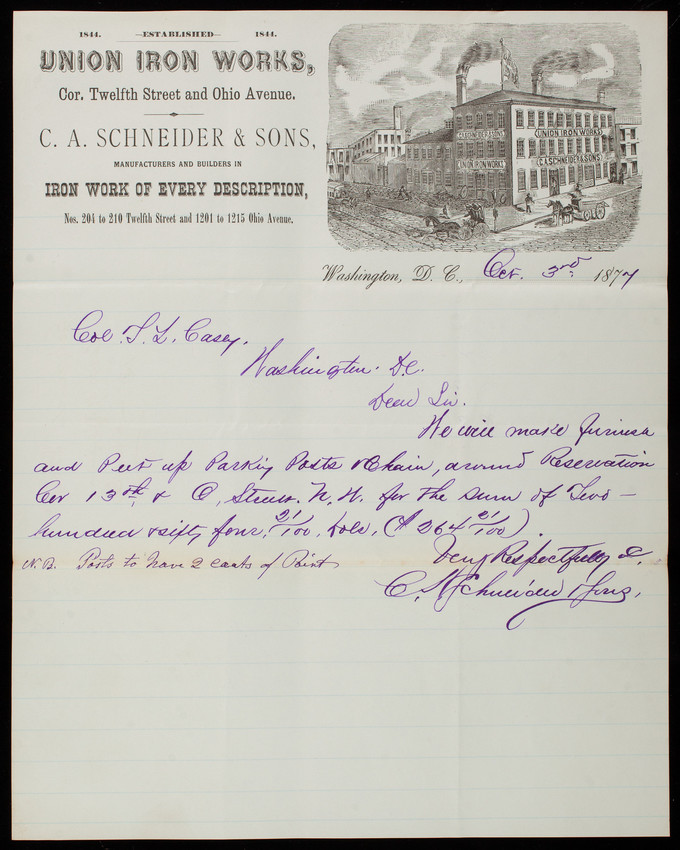 1844. ESTABLISHED 1844.
UNION IRON WORKS,
Cor. Twelfth Street and Ohio Avenue.
C. A. SCHNEIDER & SONS,
MANUFACTURERS AND BUILDERS IN
IRON WORK OF EVERY DESCRIPTION,
Nos. 204 to 210 Twelfth Street and 1201 to 1215 Ohio Avenue.
C.A. SCHNEIDER & SONS
UNION IRON WORKS
UNION IRON WORKS
C.A. SCHNEIDER & SONS
Washington, D. C., Oct. 3rd 1877
Col. T. L. Casey.
Washington. D.C.
Dear Sir.
We will make furnish
and Put up Parking Posts & Chain, around Reservation
Cor 13th & O, Streets. N. W. for the sum of Two-
hundred & sixty four, 21/100, Dols, ($ 264 21/100).
N.B. Posts to have 2 coats of Paint
Very Respectfully &.
C. A. Schneider & Sons,